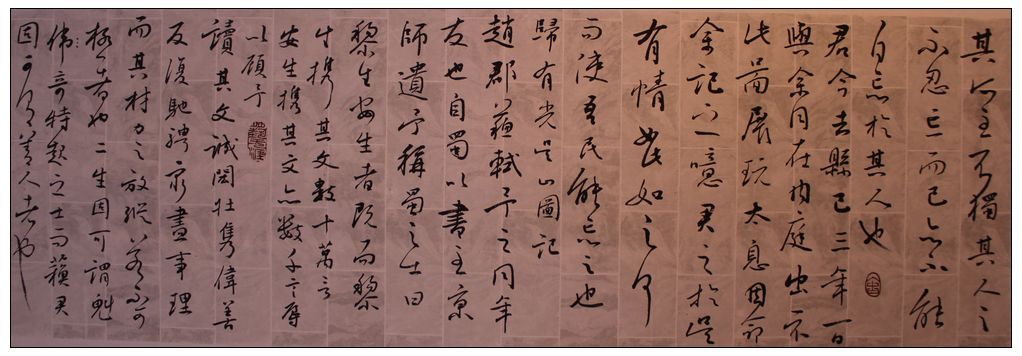 其所至不獨其人之
不忍忘而已亦不能
自忘於其人也
君今去縣已三年一日
與余同在內庭出示
此圖展玩太息因命
余記之噫君之於吳
有情此如之何
而使吾民能忘之也
歸有光吳山圖記
趙郡蘇軾予之同年
友也自蜀以書至京
師遺予稱蜀之士曰
黎生安生者既而黎
生携其文數十萬言
安生携其文亦數千言辱
以顧予
讀其文誠閎壯雋偉善
反復馳騁窮盡事理
而其材力之放縱若不可
極者也二生固可謂魁
偉奇特起之士而蘇君
固可謂善人者也